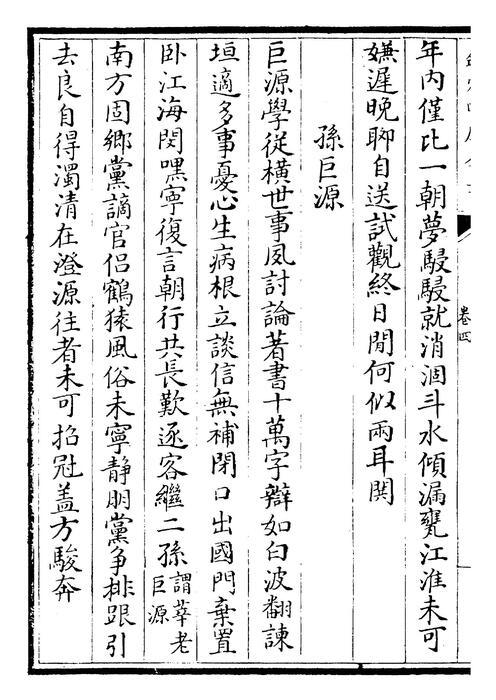 卷四
年內僅比一朝夢駸駸就消涸斗水傾漏甕江淮未可
嫌遲晚聊自送試觀終日閒何似兩耳閧
孫巨源
巨源學從橫世事夙討論著書十萬字辯如白波翻諫
垣適多事憂心生病根立談信無補閉口出國門棄置
卧江海閔嘿寧復言朝行共長歎逐客繼二孫謂莘老巨源
南方固鄉黨謫官侶鶴猿風俗未寧靜朋黨爭排跟引
去良自得濁清在澄源往者未可招冠盖方駿奔